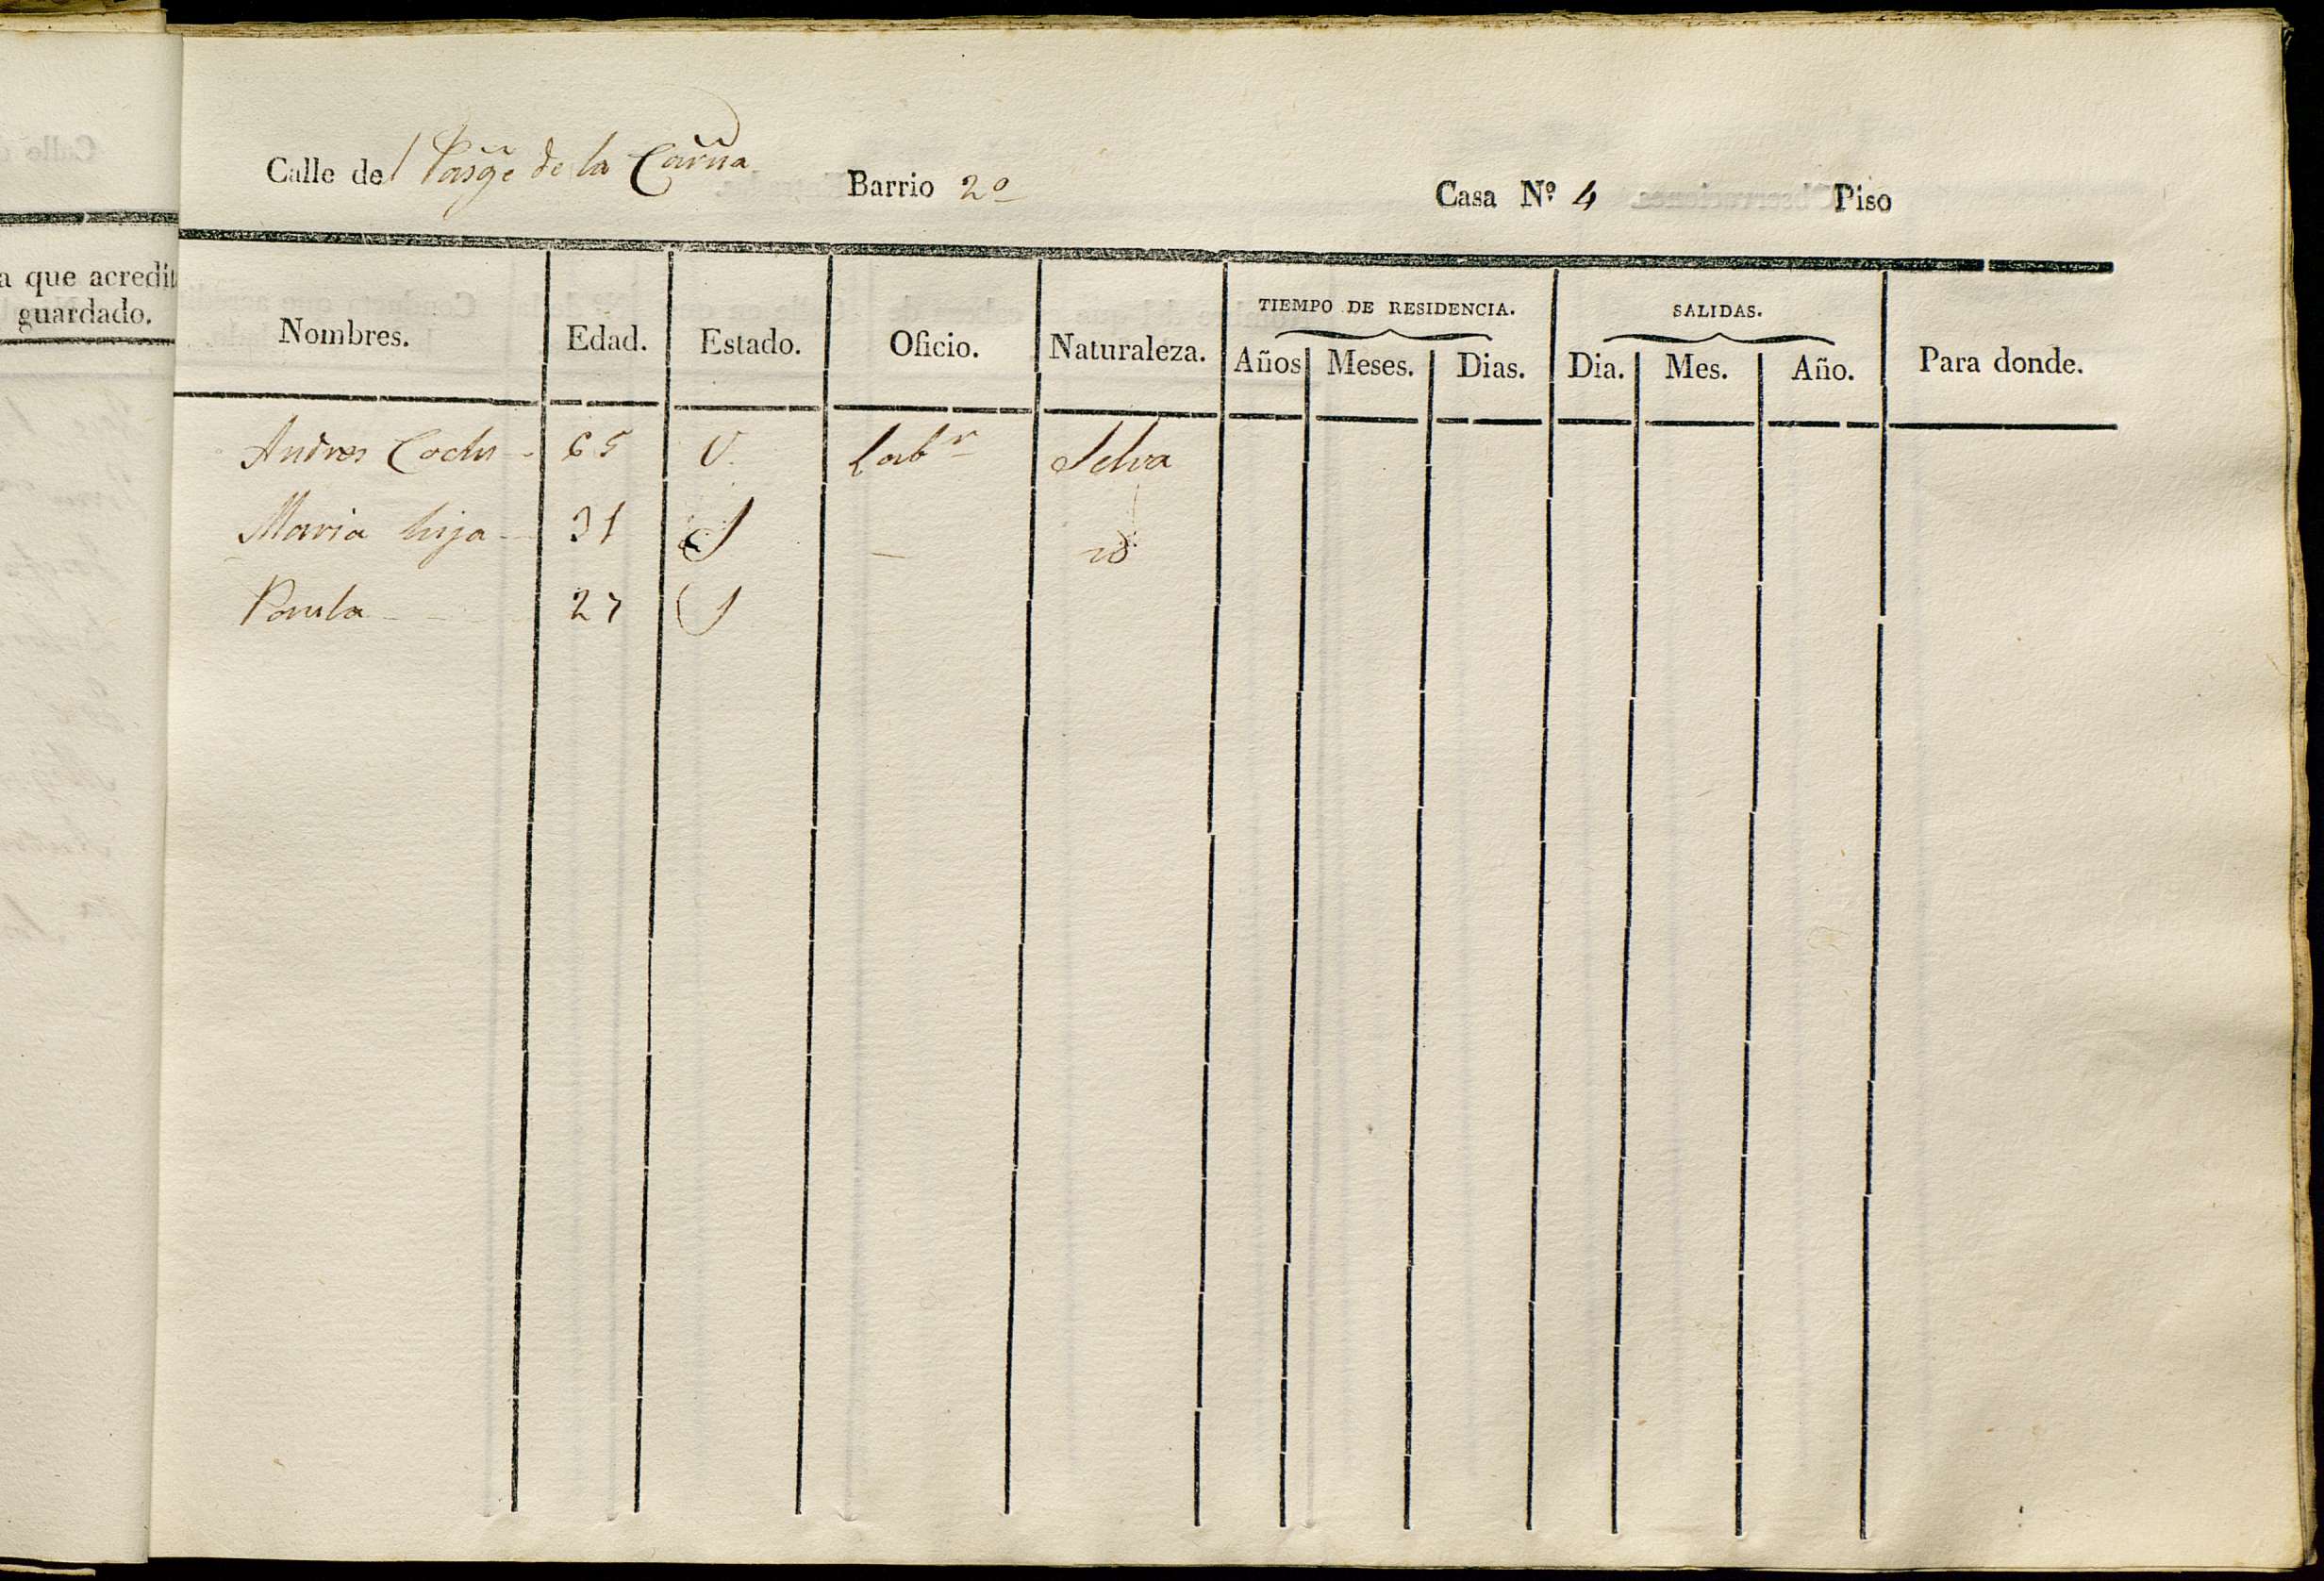 a que acredit
guardado.
Calle del Pasge de la Barrio 2º Casa Nº 4 Piso
Nombres. Edad. Estado. Oficio. Naturaleza. TIEMPO DE RESIDENCIA. SALIDAS. Para donde.
Años Meses. Dias. Dia. Mes. Año.
Andres 65 V. Labr Selva
Maria hija 31 S — id
Paula 27 S